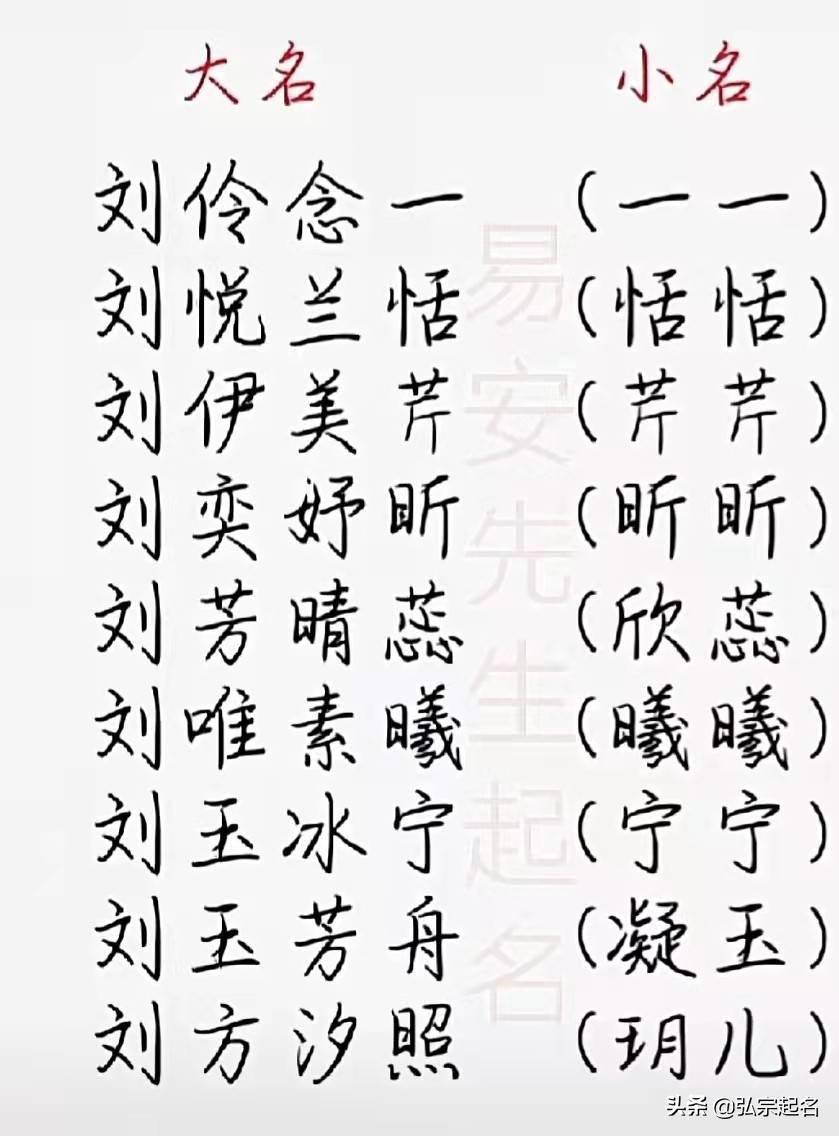 大名 小名
刘伶念一 (一一)
刘悦兰恬 (恬恬)
刘伊美芹 (芹芹)
刘奕妤昕 (昕昕)
刘芳晴蕊 (欣蕊)
刘唯素曦 (曦曦)
刘玉冰宁 (宁宁)
刘玉芳舟 (凝玉)
刘方汐照 (玥儿)
易安先生起名
头条 @弘宗起名